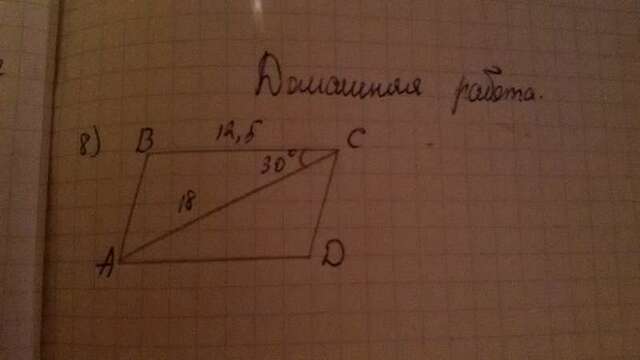 Домашняя работа.
8) B 12,5 C
30°
18
A D